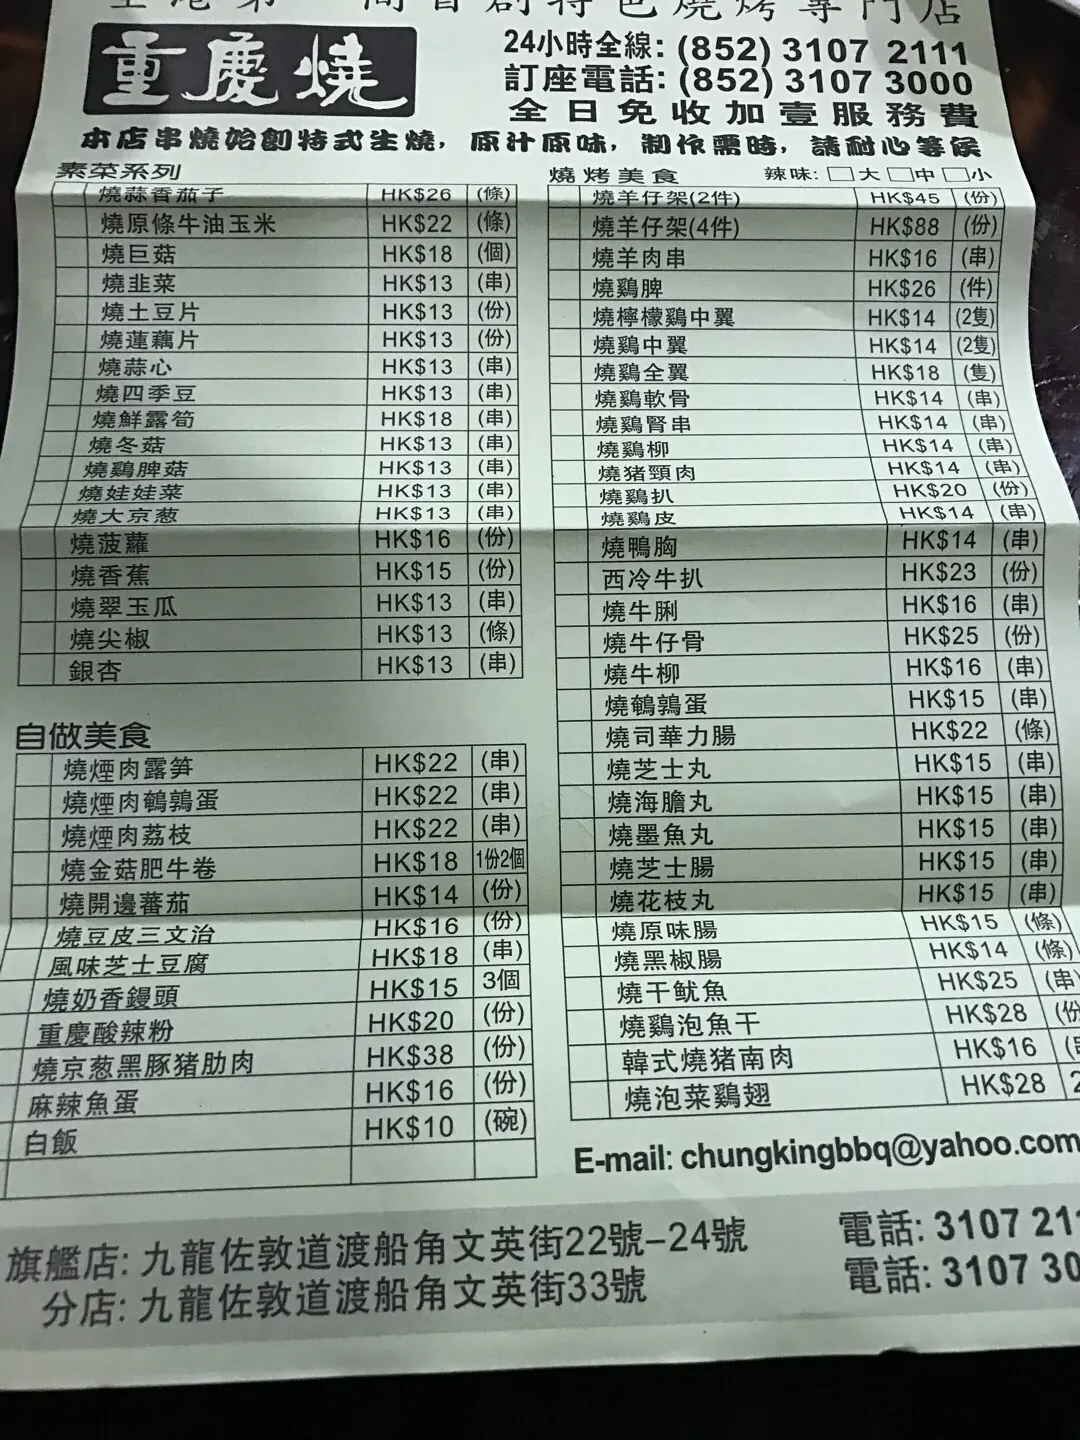 全港第一間首創特色燒烤專門店
重慶燒
24小時全線: (852) 3107 2111
訂座電話: (852) 3107 3000
全日免收加壹服務費
本店串燒始創特式生燒，原汁原味，制作需時，請耐心等候
素菜系列
燒蒜香茄子 HK$26 (條)
燒原條牛油玉米 HK$22 (條)
燒巨菇 HK$18 (個)
燒韭菜 HK$13 (串)
燒土豆片 HK$13 (份)
燒蓮藕片 HK$13 (份)
燒蒜心 HK$13 (串)
燒四季豆 HK$13 (串)
燒鮮露筍 HK$18 (串)
燒冬菇 HK$13 (串)
燒鷄脾菇 HK$13 (串)
燒娃娃菜 HK$13 (串)
燒大京葱 HK$13 (串)
燒菠蘿 HK$16 (份)
燒香蕉 HK$15 (份)
燒翠玉瓜 HK$13 (串)
燒尖椒 HK$13 (條)
銀杏 HK$13 (串)
自做美食
燒煙肉露笋 HK$22 (串)
燒煙肉鵪鶉蛋 HK$22 (串)
燒煙肉荔枝 HK$22 (串)
燒金菇肥牛卷 HK$18 1份2個
燒開邊蕃茄 HK$14 (份)
燒豆皮三文治 HK$16 (份)
風味芝士豆腐 HK$18 (串)
燒奶香饅頭 HK$15 3個
重慶酸辣粉 HK$20 (份)
燒京葱黑豚猪肋肉 HK$38 (份)
麻辣魚蛋 HK$16 (份)
白飯 HK$10 (碗)
燒烤美食 辣味: □大 □中 □小
燒羊仔架(2件) HK$45 (份)
燒羊仔架(4件) HK$88 (份)
燒羊肉串 HK$16 (串)
燒鷄脾 HK$26 (件)
燒檸檬鷄中翼 HK$14 (2隻)
燒鷄中翼 HK$14 (2隻)
燒鷄全翼 HK$18 (隻)
燒鷄軟骨 HK$14 (串)
燒鷄腎串 HK$14 (串)
燒鷄柳 HK$14 (串)
燒猪頸肉 HK$14 (串)
燒鷄扒 HK$20 (份)
燒鷄皮 HK$14 (串)
燒鴨胸 HK$14 (串)
西冷牛扒 HK$23 (份)
燒牛脷 HK$16 (串)
燒牛仔骨 HK$25 (份)
燒牛柳 HK$16 (串)
燒鵪鶉蛋 HK$15 (串)
燒司華力腸 HK$22 (條)
燒芝士丸 HK$15 (串)
燒海膽丸 HK$15 (串)
燒墨魚丸 HK$15 (串)
燒芝士腸 HK$15 (串)
燒花枝丸 HK$15 (串)
燒原味腸 HK$15 (條)
燒黑椒腸 HK$14 (條)
燒干魷魚 HK$25 (串
燒鷄泡魚干 HK$28 (份
韓式燒猪南肉 HK$16
燒泡菜鷄翅 HK$28 2
E-mail: chungkingbbq@yahoo.com
旗艦店: 九龍佐敦道渡船角文英街22號–24號 電話: 3107 21
分店: 九龍佐敦道渡船角文英街33號 電話: 3107 30